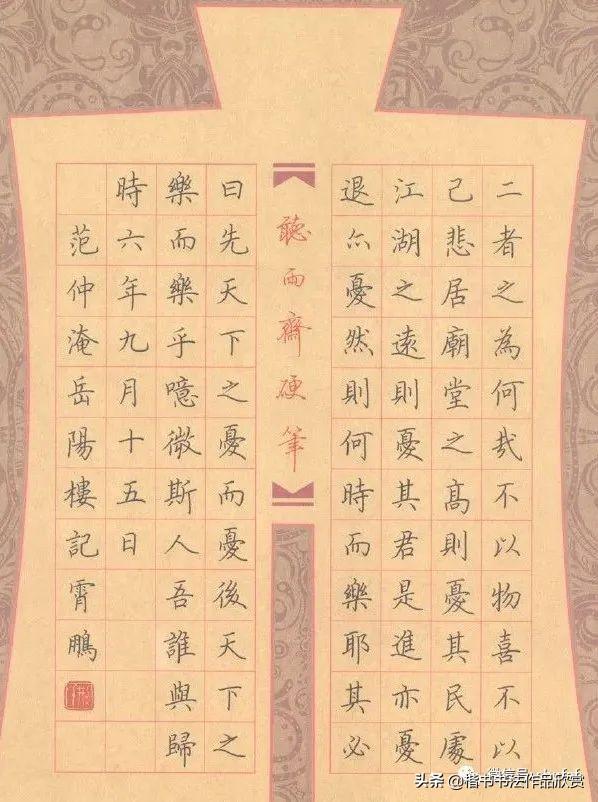 二者之為何哉不以物喜不以
己悲居廟堂之高則憂其民處
江湖之遠則憂其君是進亦憂
退亦憂然則何時而樂耶其必
聽雨齋硬筆
曰先天下之憂而憂後天下之
樂而樂乎噫微斯人吾誰與歸
時六年九月十五日
范仲淹岳陽樓記霄鵬
头条 @楷书书法作品欣赏